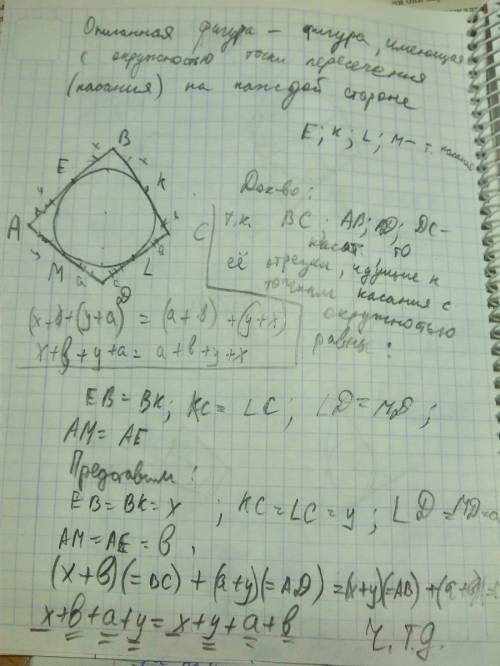 Описанная фигура – фигура, имеющая
с окружностью точки пересечения
(касания) на каждой стороне
E; K; L; M – т. касания
B
x x
E K
A C
M L
a a
D
Док-во:
т.к. BC; AB; AD; DC –
касат., то
её отрезки, идущие к
точкам касания с
окружностью
равны:
(x+b)+(y+a) = (a+b)+(y+x)
x+b+y+a = a+b+y+x
EB = BK; KC = LC; LD = MD;
AM = AE
Представим:
EB = BK = x; KC = LC = y; LD = MD = a
AM = AE = b,
(x+b)(=BC) + (a+y)(=AD) = (x+y)(=AB) + (a+b)(=
x+b+a+y = x+y+a+b
Ч.Т.Д.